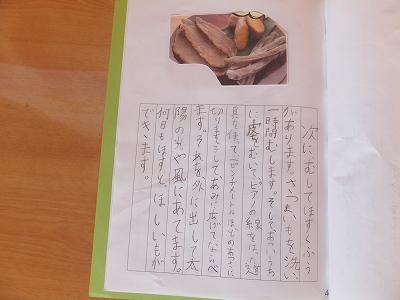 次にむしてほすくふう
があります。さつまいもを洗い、
一時間むします。そしてあついうち
に皮をむいて、ピアノの線をはった道
具を使って一センチメートルほどのあつさに
切ります。そして、あみに広げてならべ
ます。それを外に出して太
陽の光や風にあてます。
何日もほすと、ほしいもが
できます。
4